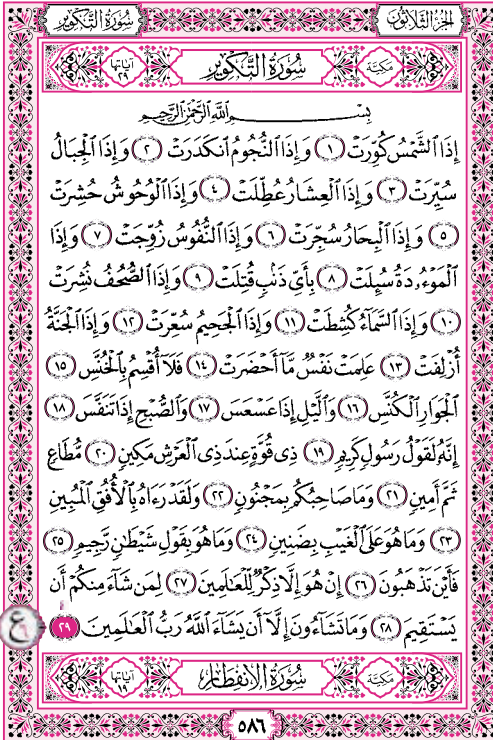 سُورَةُ التَّكْوِيرِ الجُزْءُ الثَّلَاثُونَ
مَكِّيَّة سُورَةُ التَّكْوِيرِ آيَاتُهَا ٢٩
بِسْمِ اللَّهِ الرَّحْمَٰنِ الرَّحِيمِ
إِذَا الشَّمْسُ كُوِّرَتْ ١ وَإِذَا النُّجُومُ انكَدَرَتْ ٢ وَإِذَا الْجِبَالُ
سُيِّرَتْ ٣ وَإِذَا الْعِشَارُ عُطِّلَتْ ٤ وَإِذَا الْوُحُوشُ حُشِرَتْ
٥ وَإِذَا الْبِحَارُ سُجِّرَتْ ٦ وَإِذَا النُّفُوسُ زُوِّجَتْ ٧ وَإِذَا
الْمَوْءُۥدَةُ سُئِلَتْ ٨ بِأَيِّ ذَنۢبٍ قُتِلَتْ ٩ وَإِذَا الصُّحُفُ نُشِرَتْ
١٠ وَإِذَا السَّمَآءُ كُشِطَتْ ١١ وَإِذَا الْجَحِيمُ سُعِّرَتْ ١٢ وَإِذَا الْجَنَّةُ
أُزْلِفَتْ ١٣ عَلِمَتْ نَفْسٌ مَّآ أَحْضَرَتْ ١٤ فَلَآ أُقْسِمُ بِالْخُنَّسِ ١٥
الْجَوَارِ الْكُنَّسِ ١٦ وَالَّيْلِ إِذَا عَسْعَسَ ١٧ وَالصُّبْحِ إِذَا تَنَفَّسَ ١٨
إِنَّهُۥ لَقَوْلُ رَسُولٍ كَرِيمٍ ١٩ ذِى قُوَّةٍ عِندَ ذِى الْعَرْشِ مَكِينٍ ٢٠ مُّطَاعٍ
ثَمَّ أَمِينٍ ٢١ وَمَا صَاحِبُكُم بِمَجْنُونٍ ٢٢ وَلَقَدْ رَءَاهُ بِالْأُفُقِ الْمُبِينِ
٢٣ وَمَا هُوَ عَلَى الْغَيْبِ بِضَنِينٍ ٢٤ وَمَا هُوَ بِقَوْلِ شَيْطَٰنٍ رَّجِيمٍ ٢٥
فَأَيْنَ تَذْهَبُونَ ٢٦ إِنْ هُوَ إِلَّا ذِكْرٌ لِّلْعَٰلَمِينَ ٢٧ لِمَن شَآءَ مِنكُمْ أَن
يَسْتَقِيمَ ٢٨ وَمَا تَشَآءُونَ إِلَّآ أَن يَشَآءَ اللَّهُ رَبُّ الْعَٰلَمِينَ ٢٩
ع
مَكِّيَّة سُورَةُ الانفِطَارِ آيَاتُهَا ١٩
٥٨٦